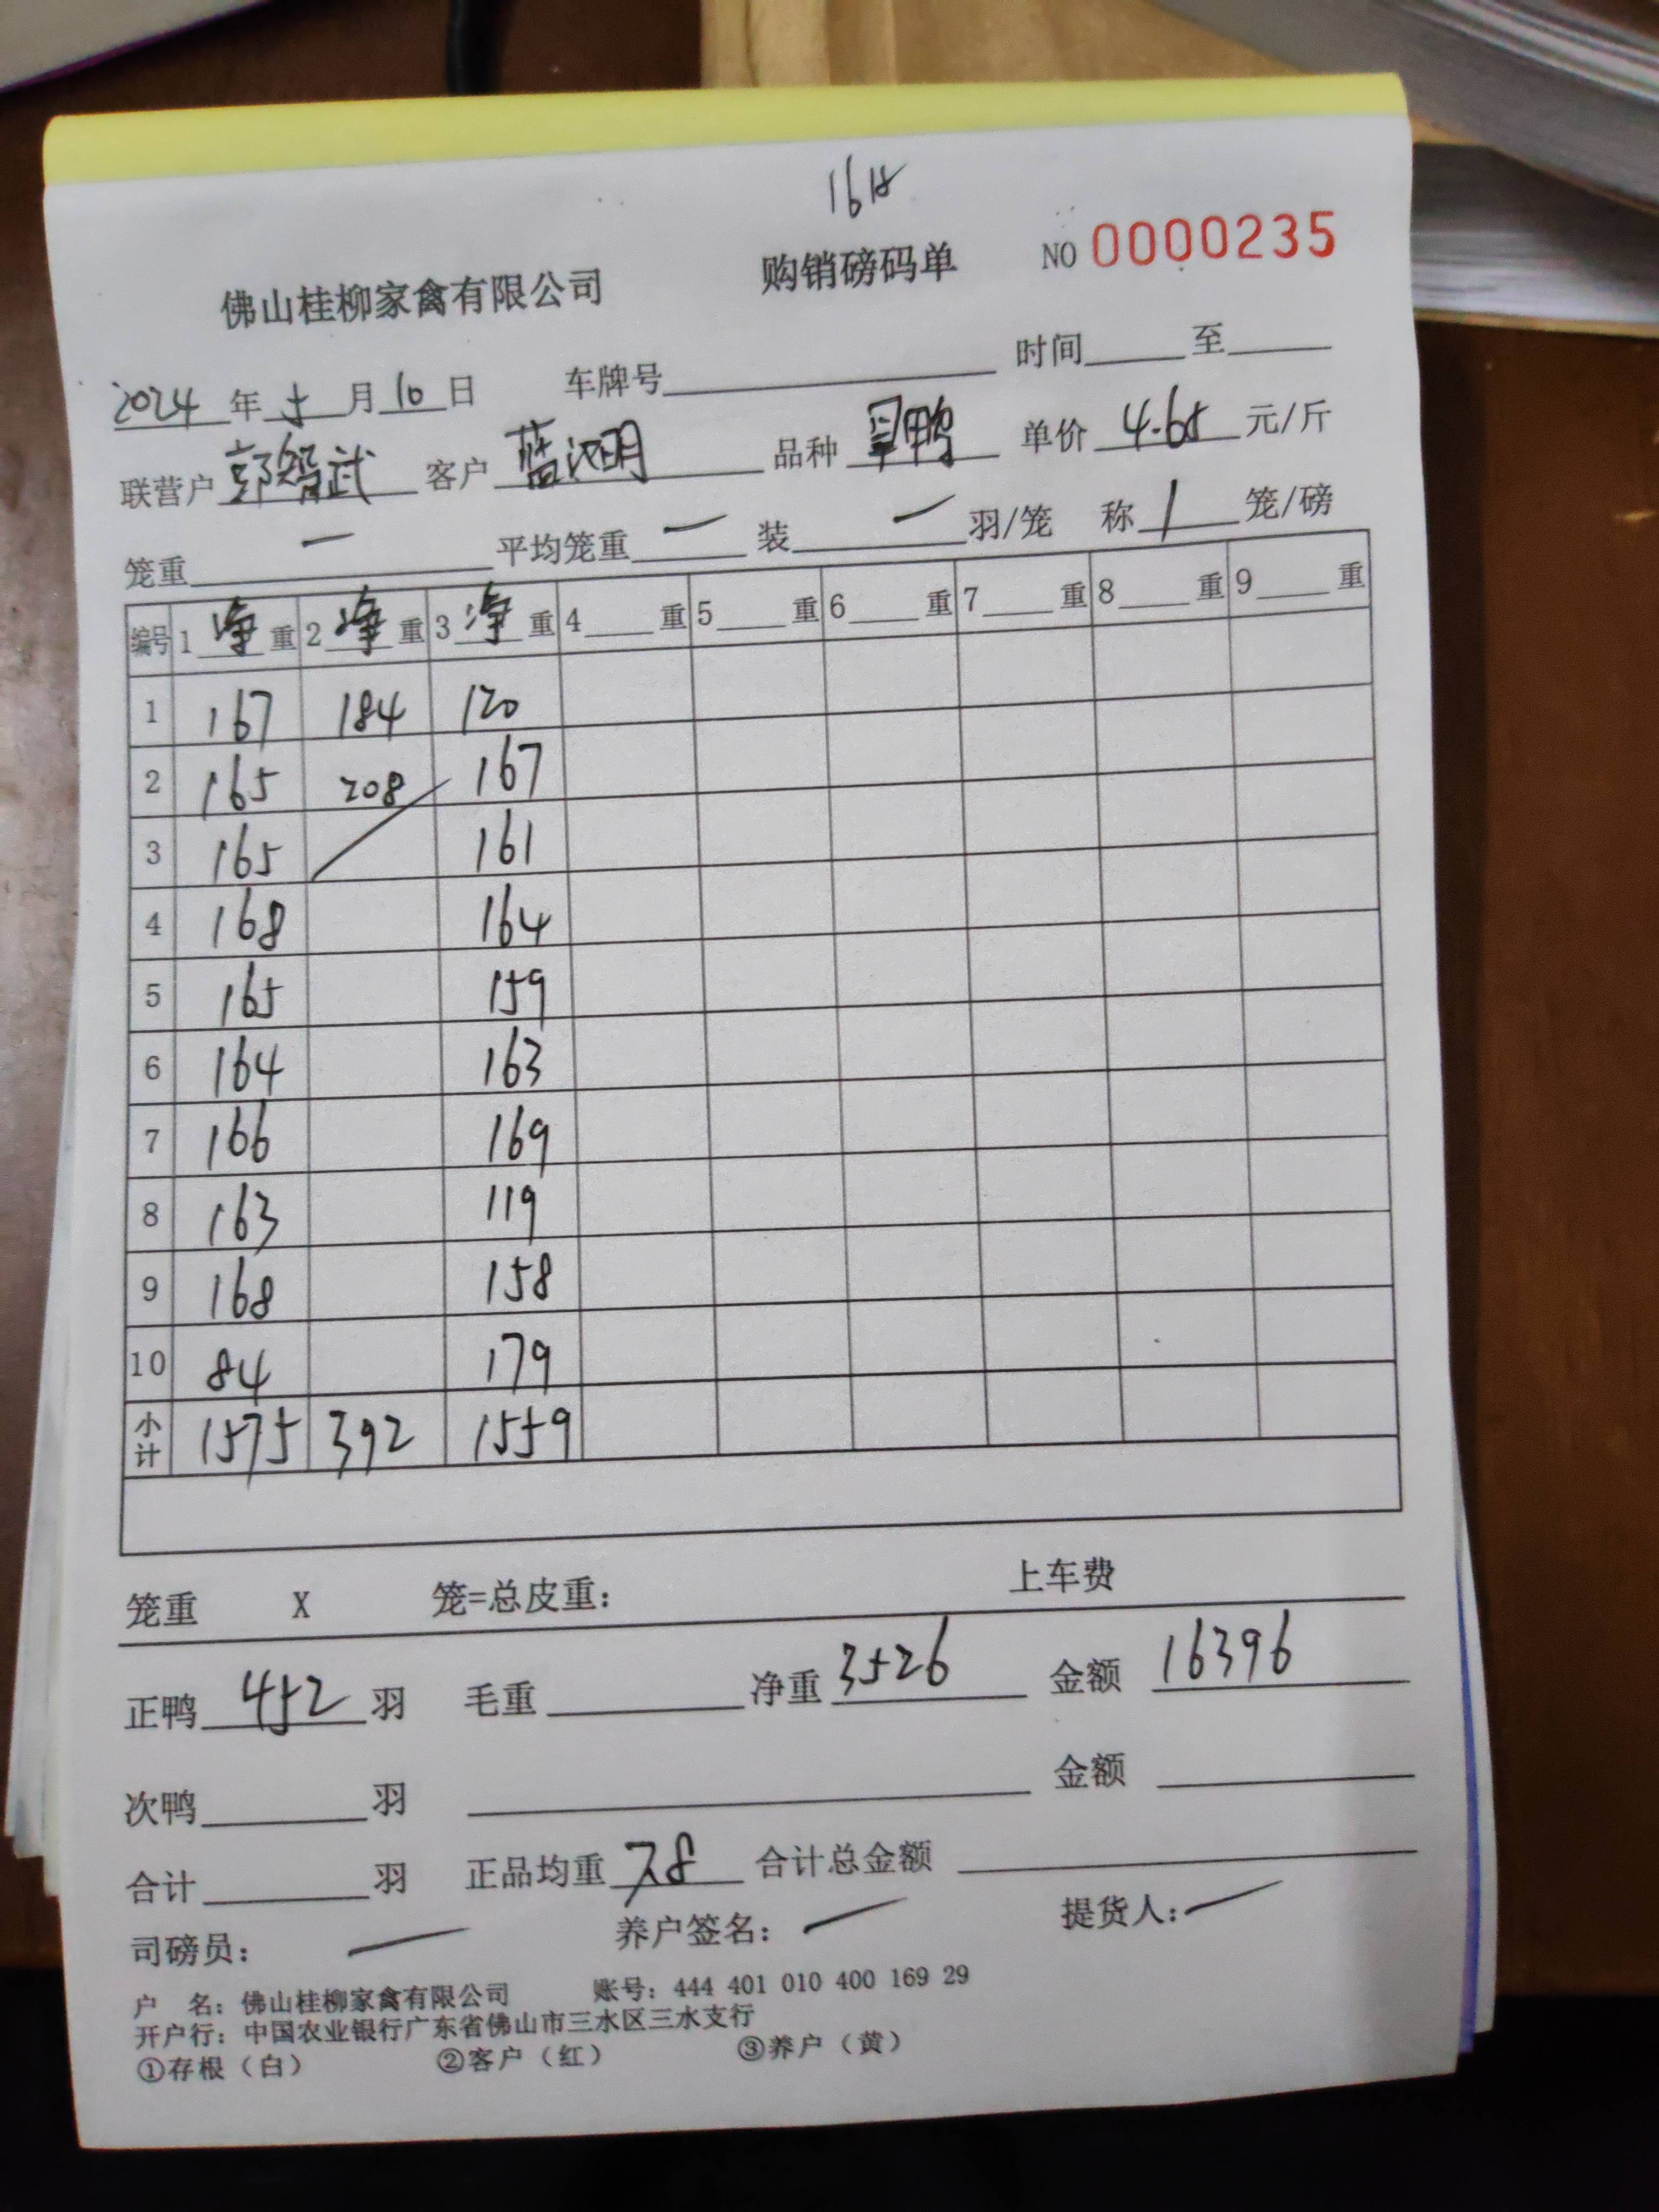 佛山桂柳家禽有限公司 购销磅码单 NO 0000235
2024 年 5 月 10 日 车牌号 时间 至
联营户 郭智武 客户 蓝汉明 品种 鸭 单价 4.65 元/斤
笼重 一 平均笼重 一 装 一 羽/笼 称 1 笼/磅
编号 1 净 重 2 净 重 3 净 重 4 重 5 重 6 重 7 重 8 重 9 重
1 167 184 120
2 165 208 167
3 165 161
4 168 164
5 165 159
6 164 163
7 166 169
8 163 119
9 168 158
10 84 179
小计 1575 392 1559
笼重 X 笼=总皮重： 上车费
正鸭 452 羽 毛重 净重 3526 金额 16396
次鸭 羽 金额
合计 羽 正品均重 7.8 合计总金额
司磅员： 养户签名： 提货人：
户 名：佛山桂柳家禽有限公司 账号：444 401 010 400 169 29
开户行：中国农业银行广东省佛山市三水区三水支行
①存根（白） ②客户（红） ③养户（黄）